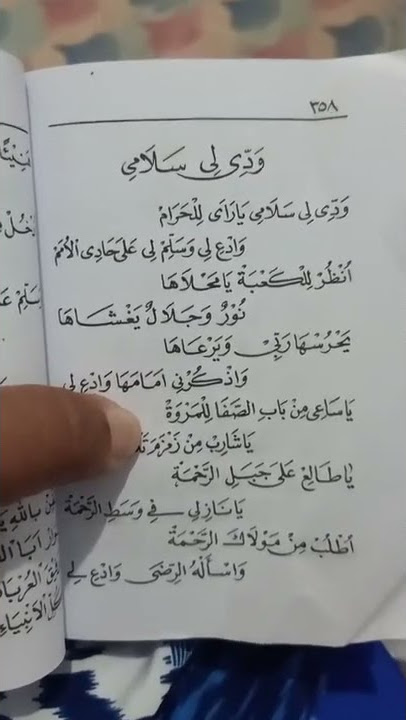 ٣٥٨
وَدِّى لِى سَلَامِى
وَدِّى لِى سَلَامِى يَارَاى لِلْحَرَامْ
وَادْعِ لِى وَسَلِّمْ لِى عَلَى حَادِى الْأُمَمْ
اُنْظُرْ لِلْكَعْبَةْ يَا مَحْلَاهَا
نُوْرٌ وَجَلَالٌ يَغْشَاهَا
يَحْرُسُهَا رَبِّيْ وَيَرْعَاهَا
وَاذْكُرْنِي اَمَامَهَا وَادْعِ لِى
يَا سَاعِى مِنْ بَابِ الصَّفَا لِلْمَرْوَةْ
يَا شَارِبْ مِنْ زَمْزَمَ
يَا طَالِعْ عَلَى جَبَلِ الرَّحْمَةْ
يَا نَازِلِى فِى وَسَطِ الرَّحْمَةْ
اُطْلُبْ مِنْ مَوْلَاكَ الرَّحْمَةْ
وَاسْأَلْهُ الرِّضَى وَادْعِ لِى